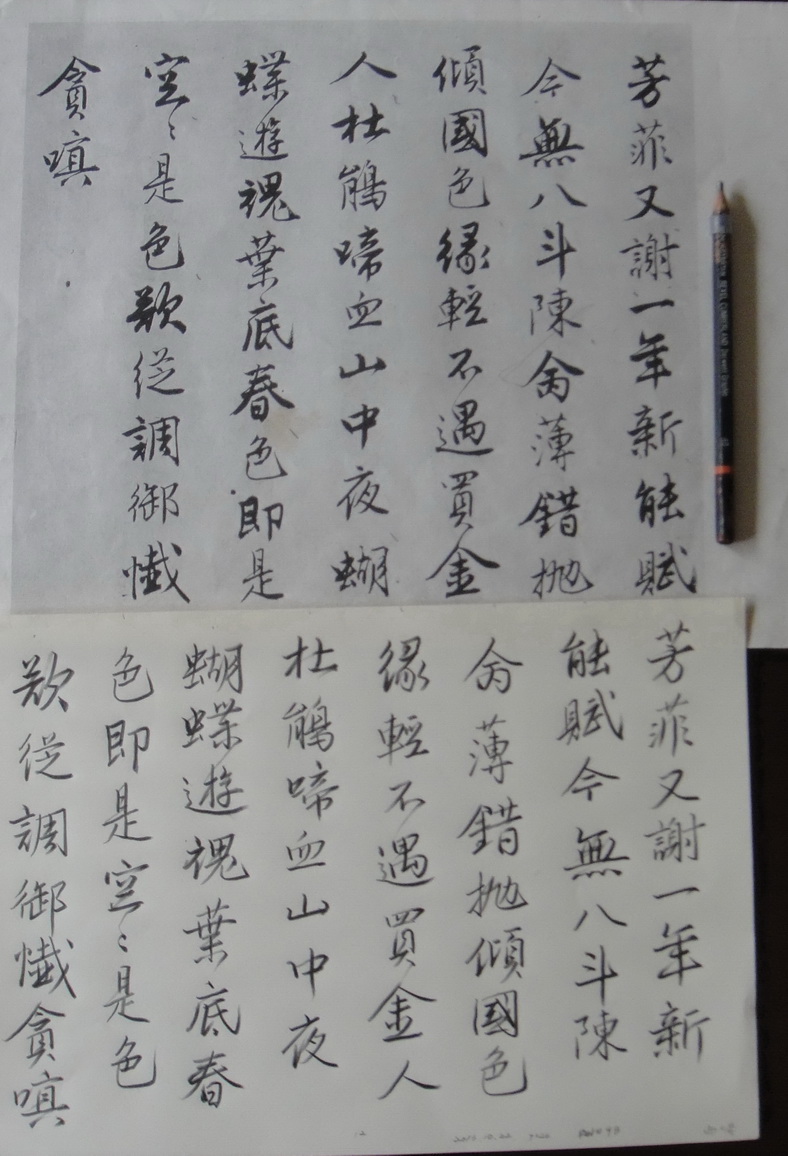 芳菲又謝一年新能賦
今無八斗陳命薄錯抛
傾國色緣輕不遇買金
人杜鵑啼血山中夜蝴
蝶遊魂葉底春色即是
空〻是色欲從調御懺
貪嗔
芳菲又謝一年新
能賦今無八斗陳
命薄錯抛傾國色
緣輕不遇買金人
杜鵑啼血山中夜
蝴蝶遊魂葉底春
色即是空〻是色
欲從調御懺貪嗔